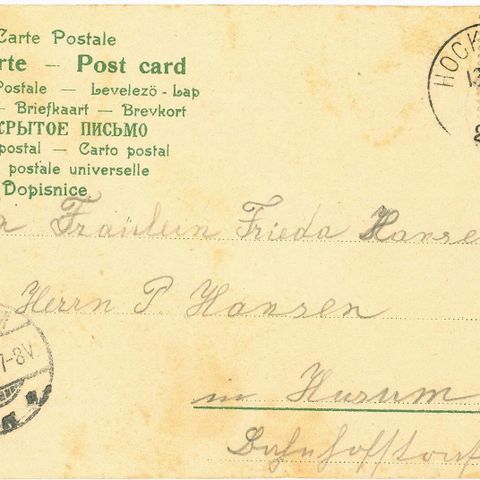 Carte Postale
rte — Post card
Postale — Levelezö-Lap
— Briefkaart — Brevkort
КРЫТОЕ ПИСЬМО
postal — Carto postal
postale universelle
Dopisnice
HOCK
13
2
Fräulein Frieda Hansen
Herrn P. Hansen
7-8V.
in Husum